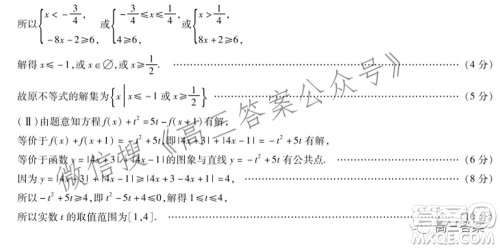 所以{x < -3/4, -8x-2≥6, 或{-3/4≤x≤1/4, 4≥6, 或{x > 1/4, 8x+2≥6,
解得 x≤-1,或 x∈∅,或 x≥1/2. (4分)
故原不等式的解集为{x|x≤-1或x≥1/2}. (5分)
(Ⅱ)由题意知方程 f(x)+t²=5t-f(x+1)有解,
等价于 f(x)+f(x+1)=-t²+5t有解,即|4x+3|+|4x-1|=-t²+5t有解,
等价于函数 y=|4x+3|+|4x-1|的图象与直线 y=-t²+5t有公共点. (6分)
因为 y=|4x+3|+|4x-1|≥|4x+3-4x+1|=4, (8分)
所以-t²+5t≥4,即 t²-5t+4≤0,解得 1≤t≤4,
所以实数 t 的取值范围为[1,4].
微信搜《高三答案公众号》
高三答案